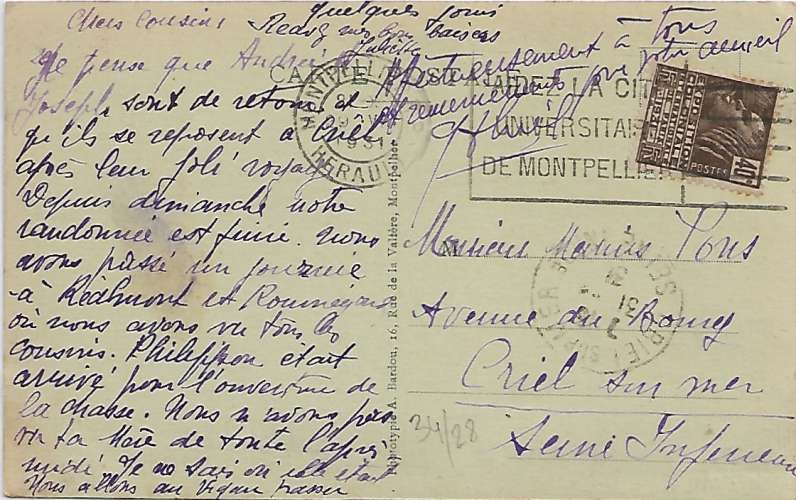 Chers cousins
Je pense que André et
Joseph sont de retour et
qu'ils se reposent à Criel
après leur joli voyage
Depuis dimanche notre
randonnée est finie. Nous
avons passé un journée
à Rédmont et
où nous avons vu tous les
cousins. Philippon était
arrivé pour l'ouverture de
la chasse. Nous n'avons pas
vu ta Mère de toute l'après
midi. Je ne sais où elle était
Nous allons au Vigan passer
quelques jours
Recevez nos bons baisers
Juliette
à tous
votre accueil
CARTE POSTALE
MONTPELLIER
1931
HERAULT
AIDEZ LA CITÉ
UNIVERSITAIRE
DE MONTPELLIER
POSTES
40c
Monsieur Marius Pons
Avenue du Bourg
Criel sur mer
Seine Inférieure
34/28
Phototypie A. Bardou, 16, Rue de la Valfère, Montpellier